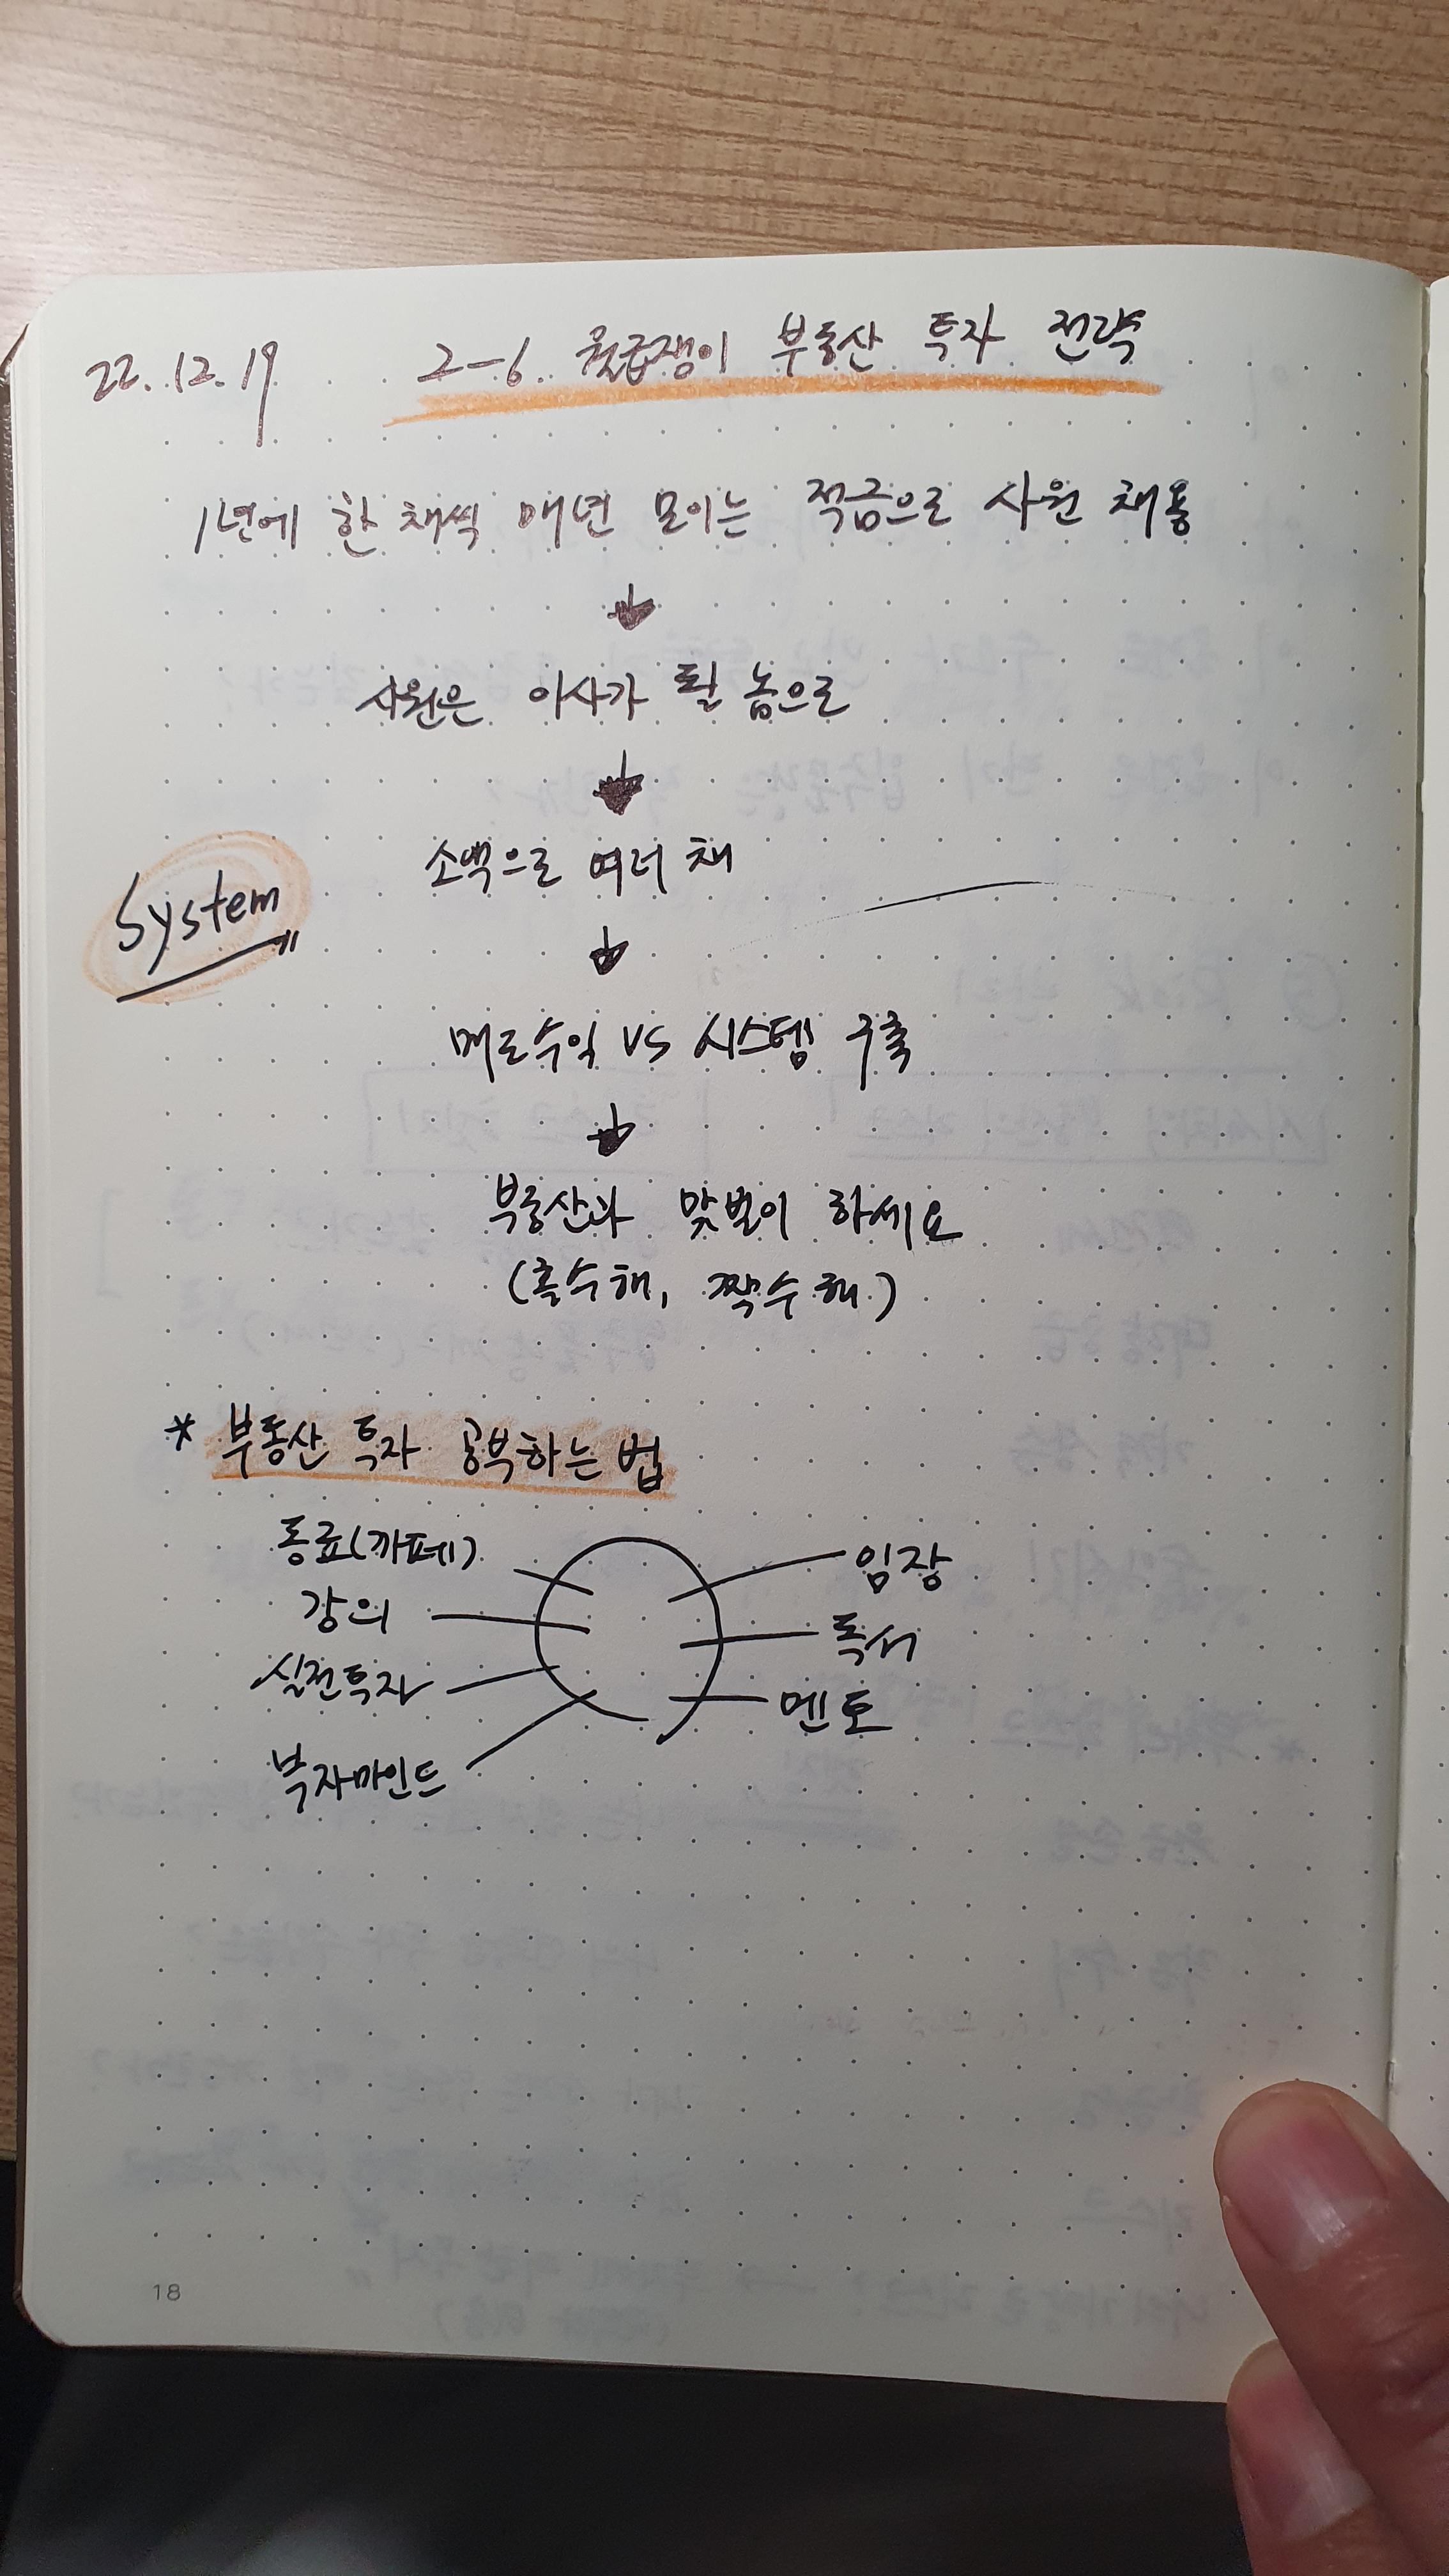 22.12.19 2-6. 월급쟁이 부동산 투자 전략
1년에 한 채씩 매년 모이는 적금으로 사원 채용
사원은 이사가 될 놈으로
소액으로 여러 채
System
매도수익 VS 시스템 구축
부동산과 맞벌이 하세요
(홀수해, 짝수해)
* 부동산 투자 공부하는 법
동료(까페) 임장
강의 독서
실전투자 멘토
부자마인드
18